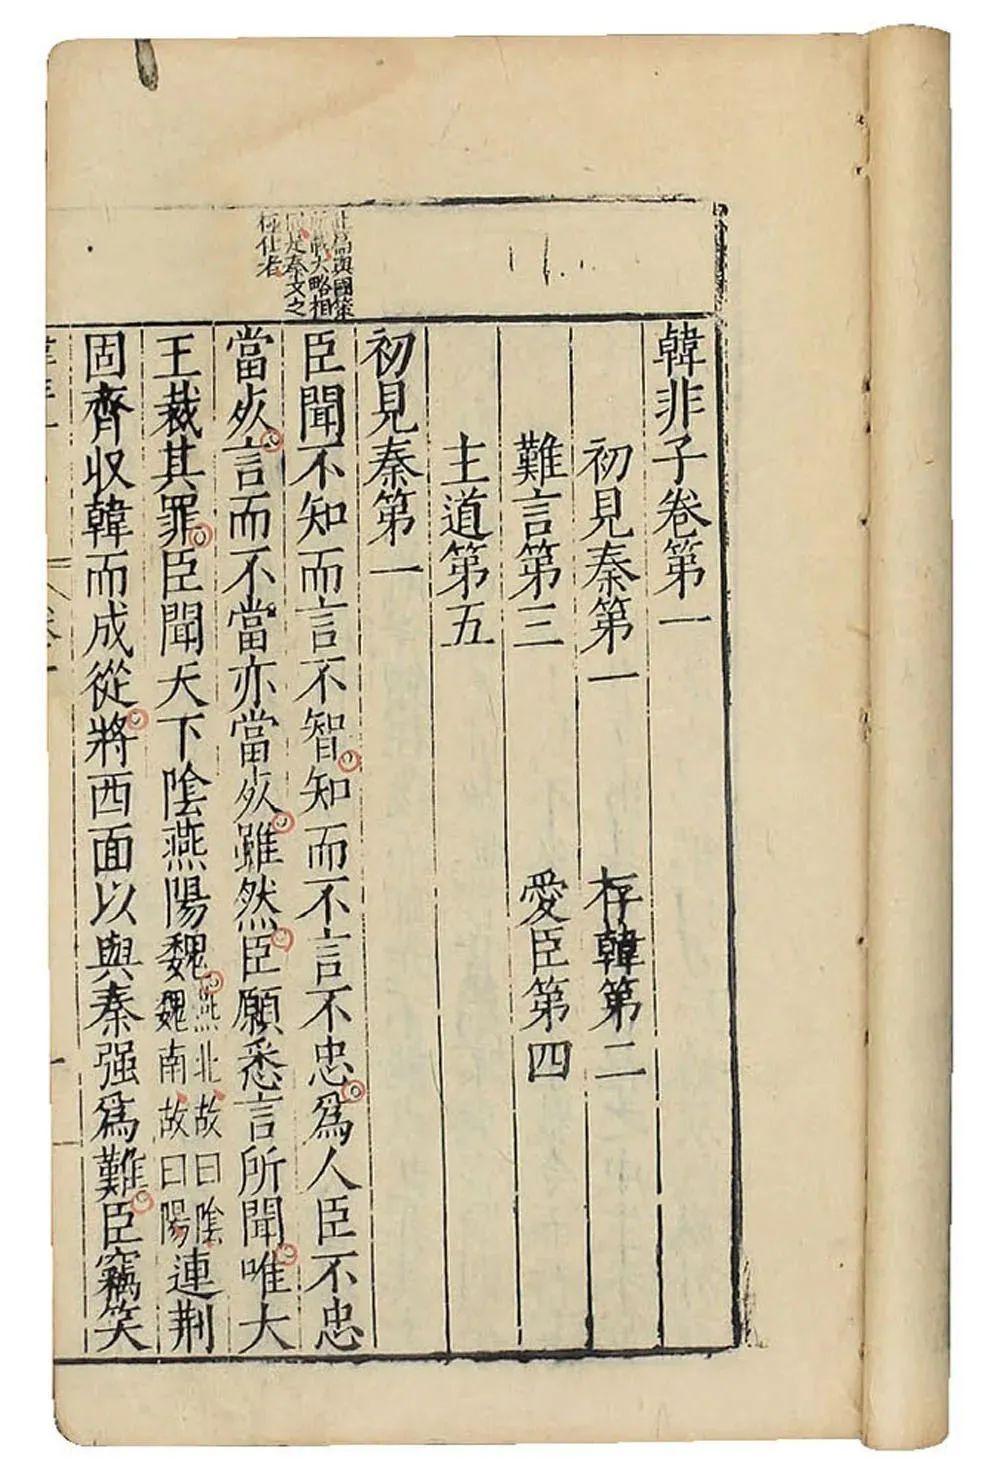 與國策
大略相
秦文之
者
韓非子卷第一
初見秦第一　存韓第二
難言第三　愛臣第四
主道第五
初見秦第一
臣聞不知而言不智知而不言不忠爲人臣不忠
當死言而不當亦當死雖然臣願悉言所聞唯大
王裁其罪臣聞天下陰燕陽魏燕北故曰陰魏南故曰陽連荆
固齊収韓而成從將西面以與秦强爲難臣竊笑